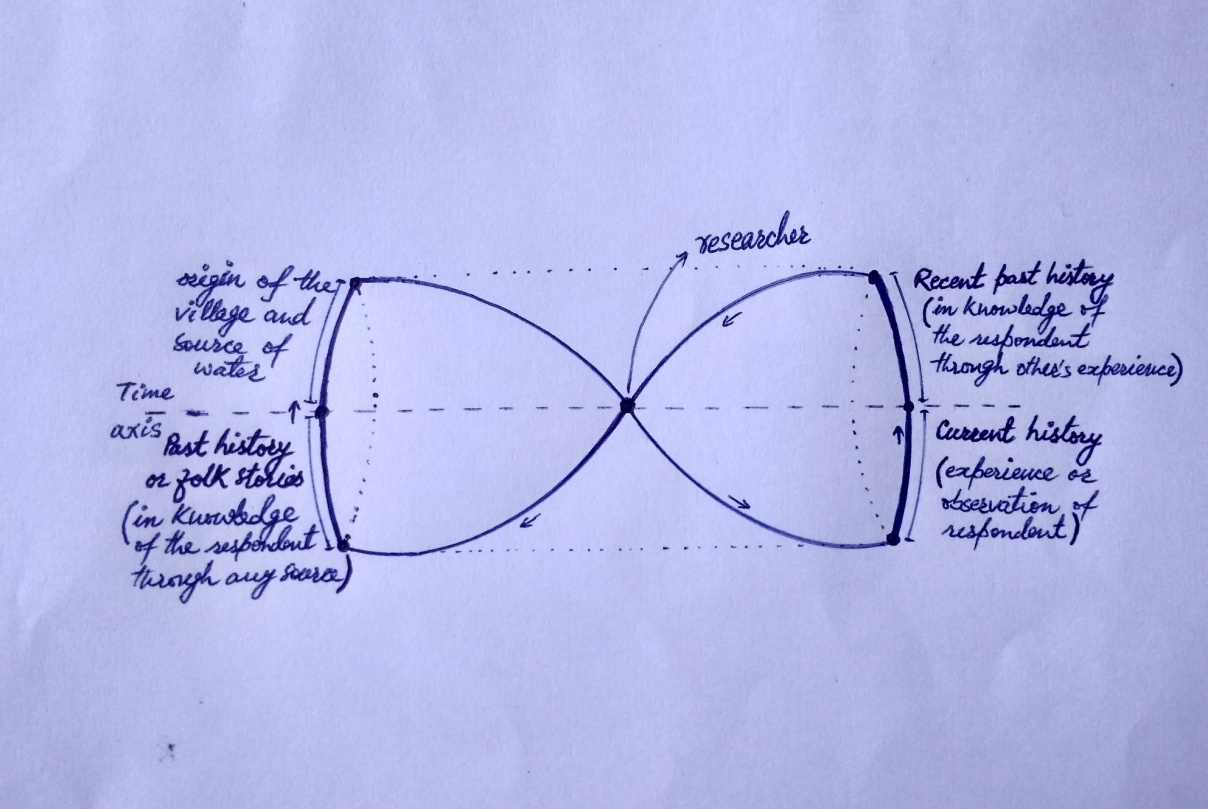 researcher
origin of the
village and
source of
water
Time
axis
Past history
or folk stories
(in knowledge
of the respondent
through any source)
Recent past history
(in knowledge of
the respondent
through other's experience)
Current history
(experience or
observation of
respondent)